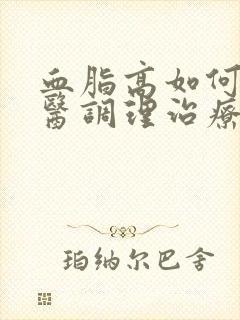 血脂高如何
醫調理治療
珀纳尔巴舍